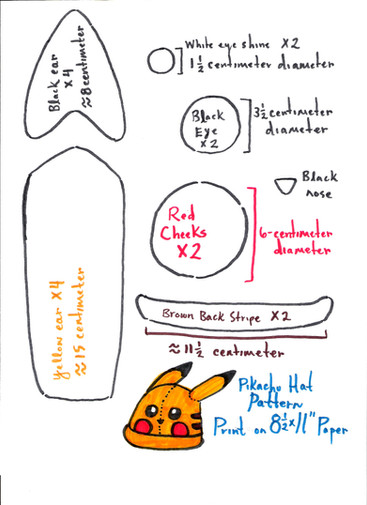 Black ear
x 4
≈8 centimeter
White eye shine x2
1 1/2 centimeter diameter
Black
Eye
x 2
3 1/2 centimeter
diameter
Black
nose
Red
Cheeks
x2
6-centimeter
diameter
Yellow ear x4
≈ 15 centimeter
Brown Back Stripe x2
≈ 11 1/2 centimeter
Pikachu Hat
Pattern
Print on 8 1/2 x 11" Paper